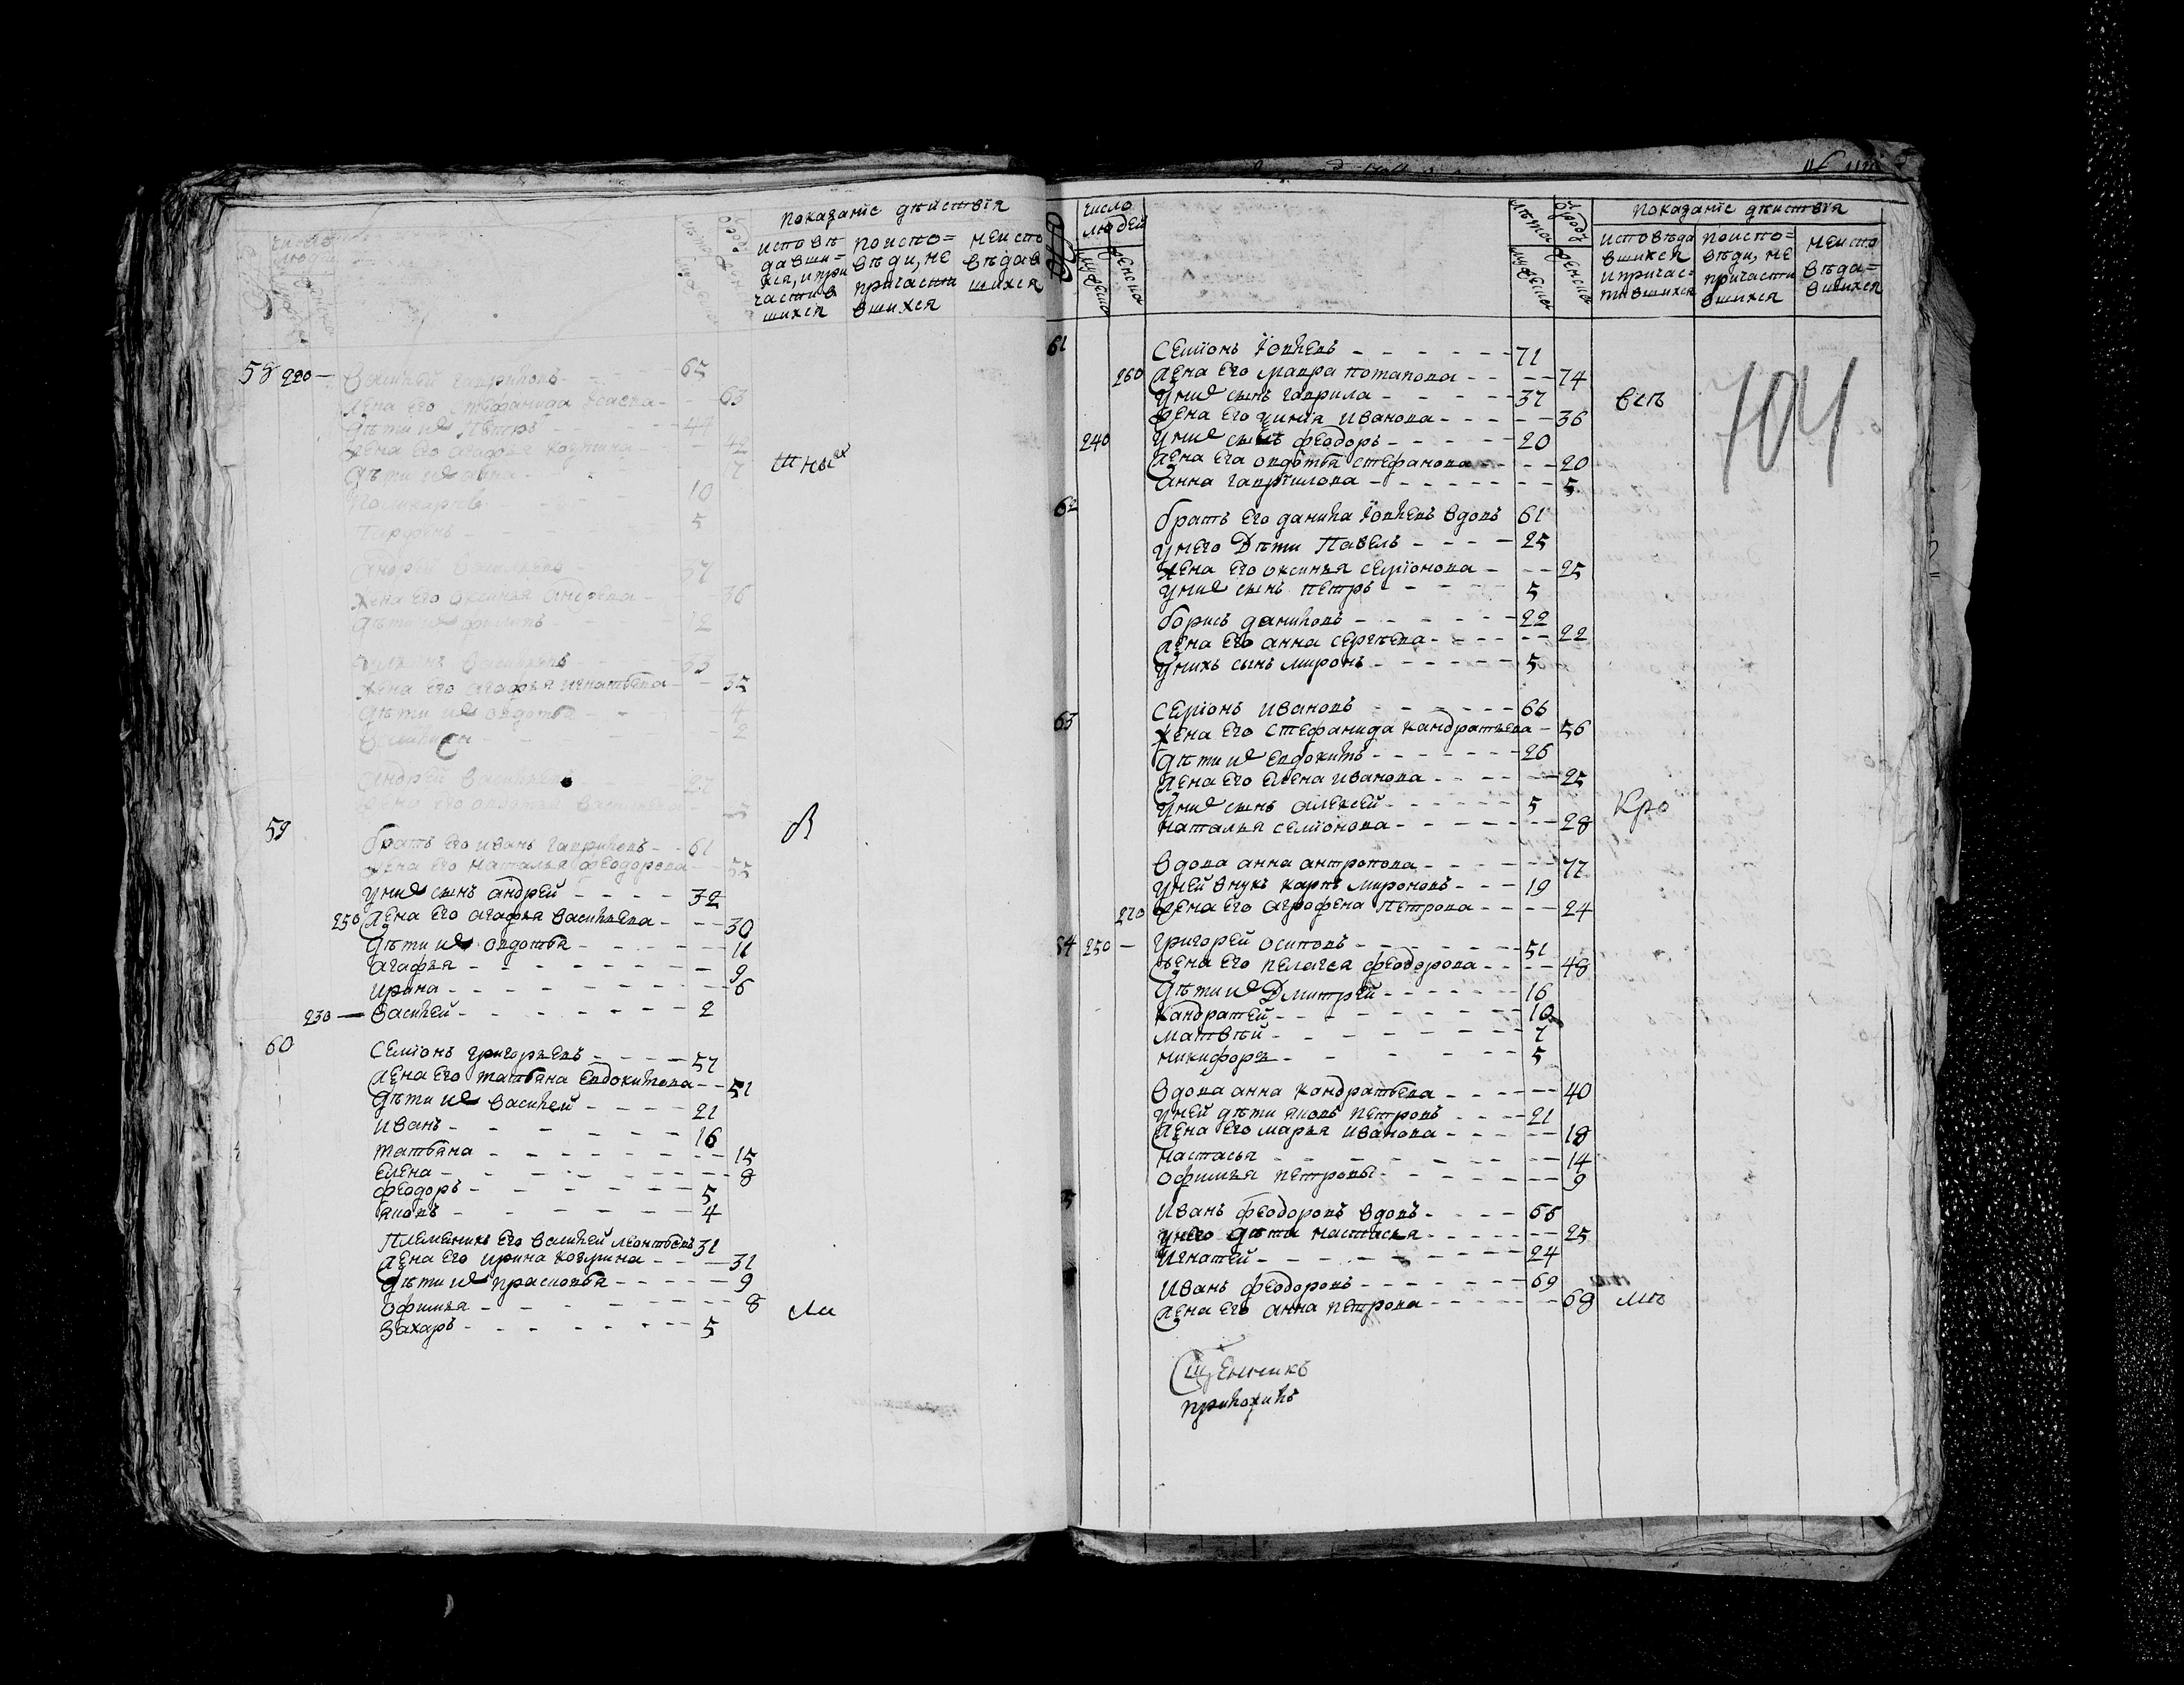 показанїе дѣиствїя
исповѣ
давши=
хся, и при
частив
шихся
поиспо=
вѣди, не
причасти
вшихся
неиспо
вѣдав
шихся
58 220 — Василѣй Гавриловъ 65
жена его Стефанида 63
дѣти их Петръ 44
жена его Агафья Козмина 42
дѣти их Анна 7
шных
Поликарпъ 10
5
Андрей Васильевъ 37
жена его Оксинья Андрева 36
дѣти их Филипъ 12
Васильевъ 33
жена его Агафья Игнатьева 35
дѣти их Овдотья 4
2
Андрей Васильевъ 27
жена его Овдотья
59
братъ его Иванъ Гавриловъ 61
жена его Наталья Феодорова 55
у них сынъ Андрей 32
250 жена его Агафья Васильева 30
дѣти их Овдотья 11
Агафья 9
Ирина 6
230 — Василей 2
60 Семїонъ Григорьевъ 57
жена его Татьяна Евдокимова 51
дѣти их Василей 21
Иванъ 16
Татьяна 15
Елена 8
Феодоръ 5
Яковъ 4
Племеникъ его Василей Леонтьевъ 31
жена его Ирина Козмина 31
дѣти их Прасковья 9
Офимья 8
ли
Захаръ 5
число
людей
мужеска
женска
лѣта
ѿ роду
мужеска
женска
показанїе дѣиствїя
исповѣда
вшихся
и причас=
тившихся
поиспо=
вѣди, не
причасти
вшихся
неиспо
вѣда=
вшихся
704
61 Семїонъ Їовлевъ 71
260 жена его Мавра Потапова 74
у них сынъ Гаврила 37
всѣ
жена его Иванова 36
240 у них сынъ Феодоръ 20
жена его Овдотья Стефанова 20
Анна Гаврїилова 5
62 братъ его Данила Їовлевъ вдовъ 61
у него дѣти Павелъ 25
жена его Оксинья Семїонова 25
у них сынъ Петръ 5
Борисъ Даниловъ 22
жена его Анна Сергѣева 22
у нихъ сынъ Миронъ 5
63 Семїонъ Ивановъ 66
жена его Стефанида Кандратьева 56
дѣти их Евдокимъ 26
жена его Елена Иванова 25
у них сынъ Алексей 5
Кро
Наталья Семїонова 28
вдова Анна Антропова 77
у ней внукъ Карпъ Мироновъ 19
270 жена его Агрофена Петрова 24
64 250 — Григорей Осиповъ 51
жена его Пелагея Феодорова 48
дѣти их Дмитрей 16
Кандратей 10
Матвѣй 7
Никифоръ 5
вдова Анна Кандратьева 40
у ней дѣти Яковъ Петровъ 21
жена его Марья Иванова 18
Настасья 14
Офимья Петровы 9
Иванъ Феодоровъ вдовъ 66
у него дѣти Настасья 25
Игнатей 24
Иванъ Феодоровъ 69
жена его Анна Петрова 68
мѣ
приложилъ